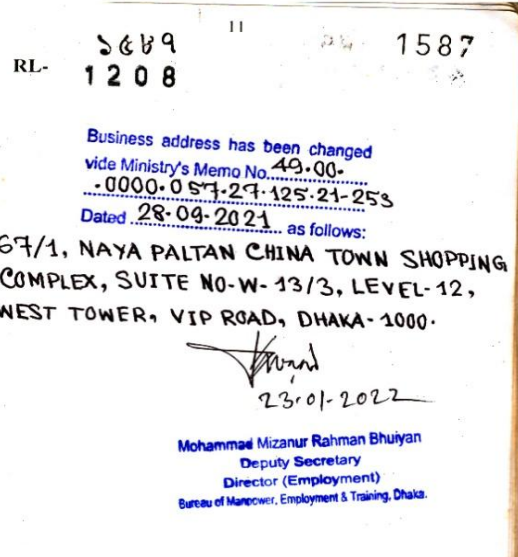 11
১৫৮৭
1587
RL-
1208
Business address has been changed
vide Ministry's Memo No. 49.00.
.0000.057.27.125.21-253
Dated 28.09.2021 as follows:
67/1, NAYA PALTAN CHINA TOWN SHOPPING
COMPLEX, SUITE NO-W-13/3, LEVEL-12,
WEST TOWER, VIP ROAD, DHAKA-1000.
23.01.2022
Mohammad Mizanur Rahman Bhuiyan
Deputy Secretary
Director (Employment)
Bureau of Manpower, Employment & Training, Dhaka.